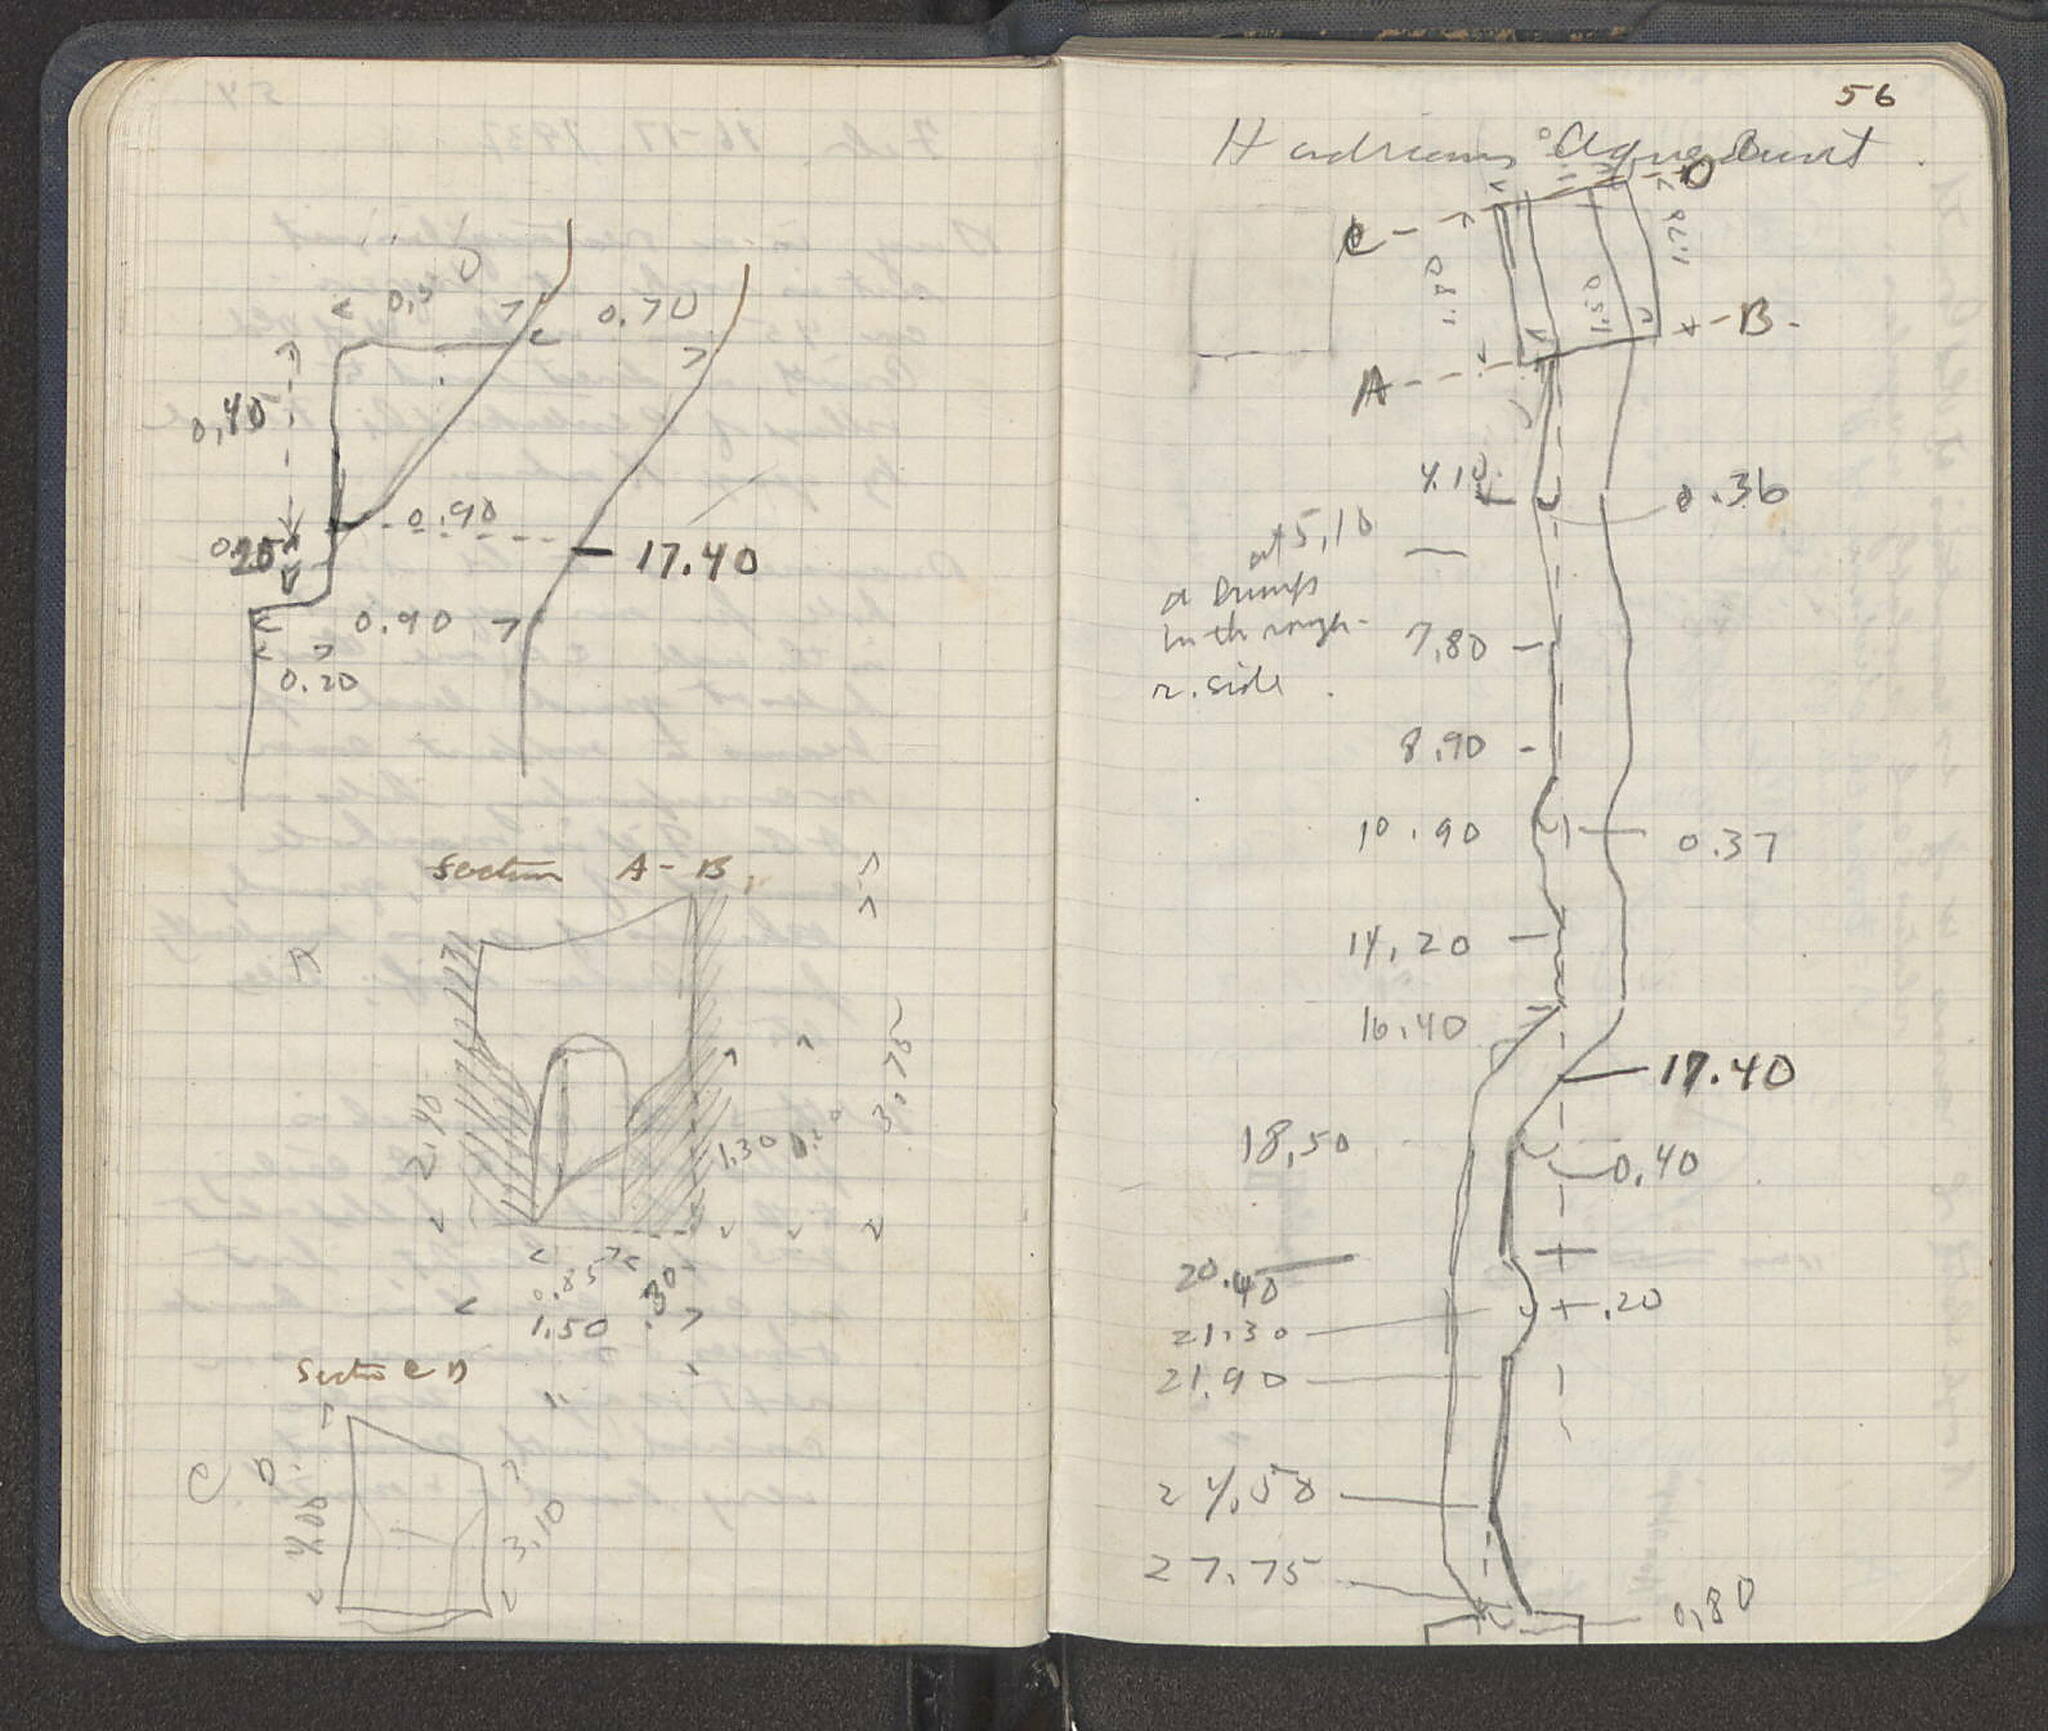 0.70
0,40
0.90
0.25
17.40
0.90
0.20
Section A-B.
A
2.40
1.30
3.75
0.85
.30
1.50
Section C D
C
D
4.00
3,10
56
Hadrians Aqueduct
D
C
1.80
1.50
1.78
B
A
4.10
0.36
at 5,10
a bump
in through
r. side
7,80
8.90
10.90
0.37
14,20
16.40
17.40
18,50
0.40
20.40
21.30
.20
21.90
24.50
27.75
0,80